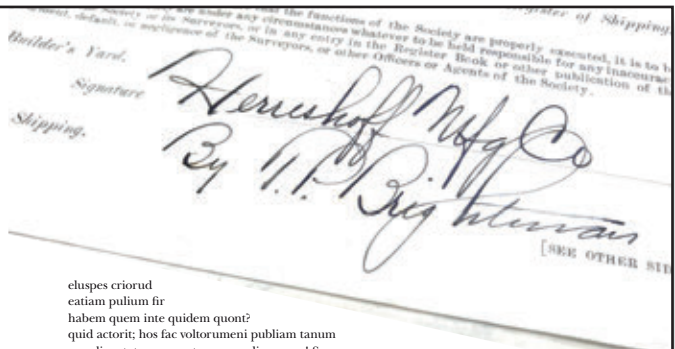 Register of Shipping,
that the functions of the Society are properly executed, it is to
the Society or its Surveyors, are under any circumstances whatever to be held responsible for any inaccuracy
default, or negligence of the Surveyors, or in any entry in the Register Book or other publication of
or other Officers or Agents of the Society.
Builder's Yard.
Signature
Shipping.
Herreshoff Mfg Co
By T. P. Brightman
[SEE OTHER SID
eluspes criorud
eatiam pulium fir
habem quem inte quidem quont?
quid actorit; hos fac voltorumeni publiam tanum